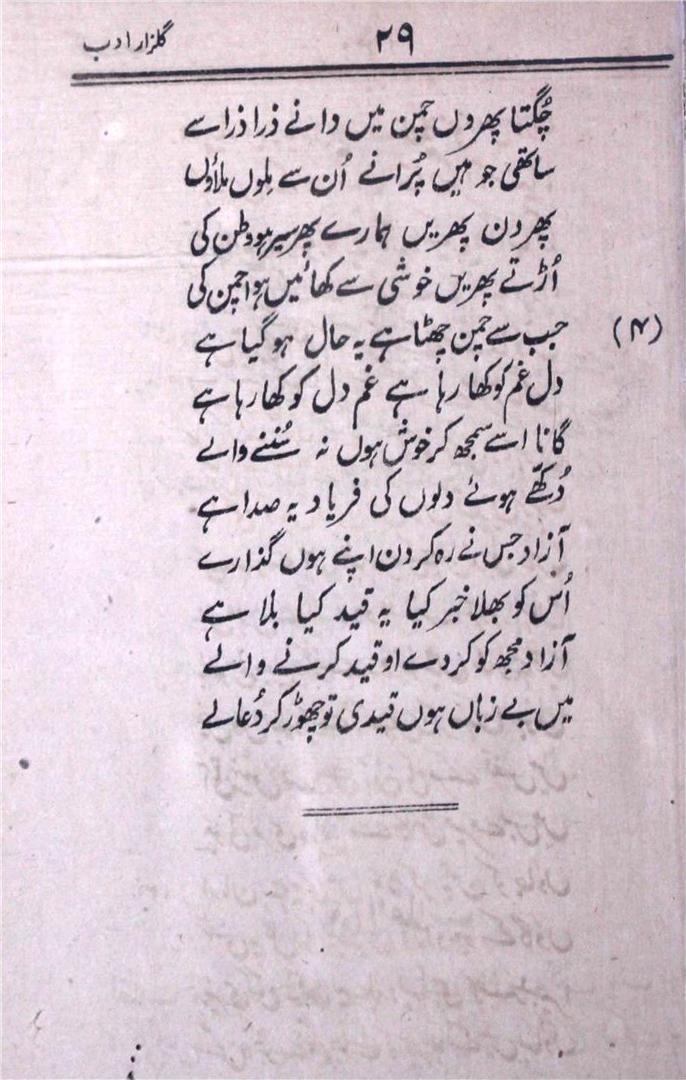 گلزار ادب ۲۹
چُگتا پھروں چمن میں دانے ذرا ذرا سے
ساتھی جو ہیں پُرانے اُن سے مِلوں مِلاؤں
پھر دن پھریں ہمارے پھر سیر ہو وطن کی
اُڑتے پھریں خوشی سے کھائیں ہوا چمن کی
(۴) جب سے چمن چھٹا ہے یہ حال ہو گیا ہے
دل غم کو کھا رہا ہے غم دل کو کھا رہا ہے
گانا اسے سمجھ کر خوش ہوں نہ سُننے والے
دُکھّے ہوئے دلوں کی فریاد یہ صدا ہے
آزاد جس نے رہ کر دن اپنے ہوں گذارے
اُس کو بھلا خبر کیا یہ قید کیا بلا ہے
آزاد مجھ کو کر دے او قید کرنے والے
میں بے زباں ہوں قیدی تو چھوڑ کر دُعا لے